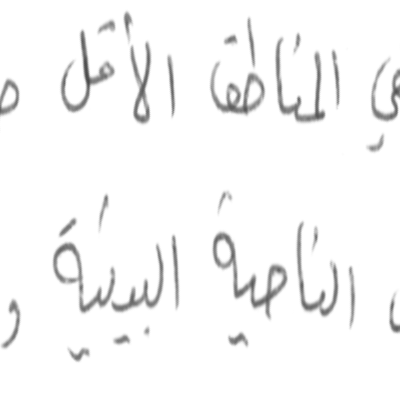 في المناطق الأقل
الناحية البيئية و